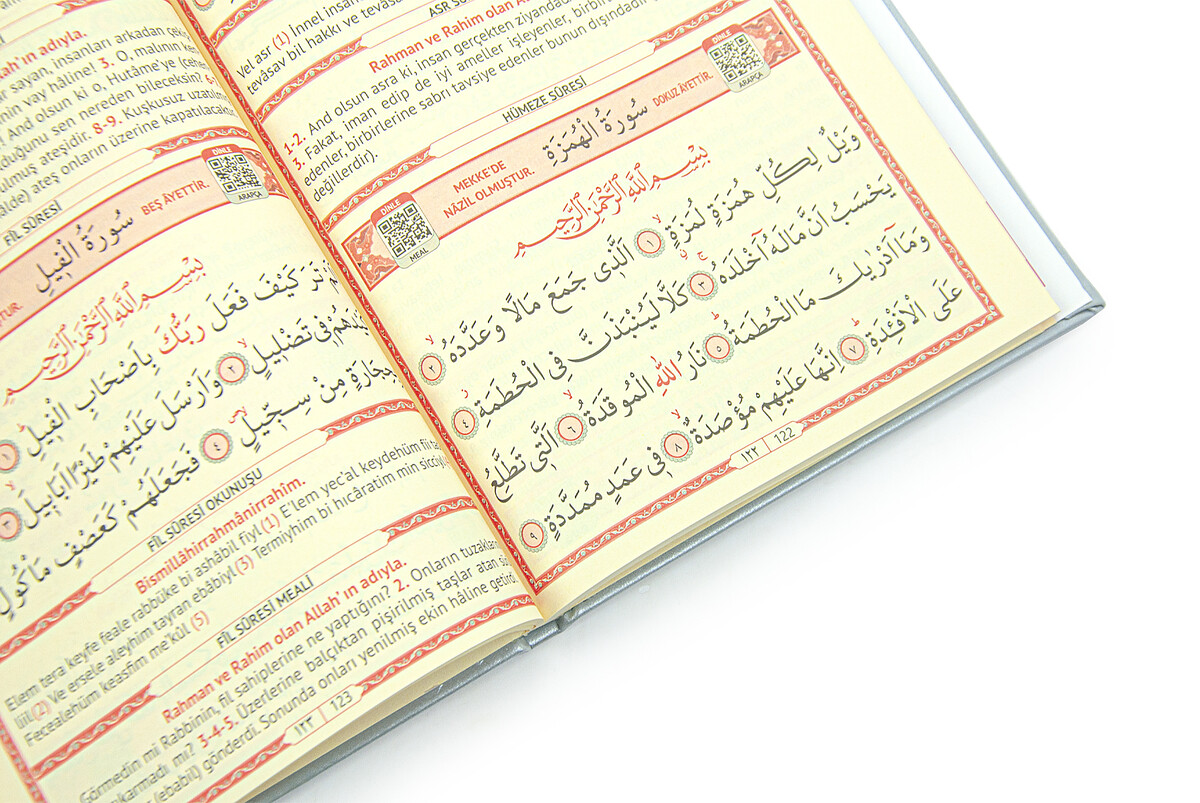 ASR SÛ
Vel asr (1) İnnel insa
tevâsav bil hakkı ve tevas
Rahman ve Rahim olan A
1-2. And olsun asra ki, insan gerçekten ziyandad
3. Fakat, iman edip de iyi ameller işleyenler, birbirin
edenler, birbirlerine sabrı tavsiye edenler bunun dışındadır
değillerdir).
HÜMEZE SÛRESİ
DİNLE
MEAL
MEKKE'DE
NÂZİL OLMUŞTUR.
سُورَةُ الْهُمَزَةِ
DOKUZ ÂYETTİR.
DİNLE
ARAPÇA
بِسْمِ اللّٰهِ الرَّحْمٰنِ الرَّحِيمِ
وَيْلٌ لِكُلِّ هُمَزَةٍ لُمَزَةٍ ١ اَلَّذٖى جَمَعَ مَالًا وَعَدَّدَهُ ٢
يَحْسَبُ اَنَّ مَالَهُٓ اَخْلَدَهُ ٣ كَلَّا لَيُنْبَذَنَّ فِى الْحُطَمَةِ ٤
وَمَٓا اَدْرٰيكَ مَا الْحُطَمَةُ ٥ نَارُ اللّٰهِ الْمُوقَدَةُ ٦ اَلَّتٖى تَطَّلِعُ
عَلَى الْاَفْـِٔدَةِ ٧ اِنَّهَا عَلَيْهِمْ مُؤْصَدَةٌ ٨ فٖى عَمَدٍ مُمَدَّدَةٍ ٩
١٢٢ | 122
ah'ın adıyla.
sayan, insanları arkadan çek
nin vay hâline! 3. O, malının ken
And olsun ki o, Hutâme'ye (cehe
duğunu sen nereden bileceksin? 6-
ulmuş ateşidir. 8-9. Kuşkusuz uzatılm
âlde) ateş onların üzerine kapatılacak
FİL SÛRESİ
TUR.
سُورَةُ الْفٖيلِ
BEŞ ÂYETTİR.
DİNLE
ARAPÇA
بِسْمِ اللّٰهِ الرَّحْمٰنِ الرَّحِيمِ
تَرَ كَيْفَ فَعَلَ رَبُّكَ بِاَصْحَابِ الْفٖيلِ ١
فٖى تَضْلٖيلٍ ٢ وَاَرْسَلَ عَلَيْهِمْ طَيْرًا اَبَابٖيلَ ٣
بِحِجَارَةٍ مِنْ سِجّٖيلٍ ٤ فَجَعَلَهُمْ كَعَصْفٍ مَأْكُولٍ
FİL SÛRESİ OKUNUŞU
Bismillâhirrahmânirrahim.
Elem tera keyfe feale rabbüke bi ashâbil fiyl (1) E'lem yec'al keydehüm fii ta
liil (2) Ve ersele aleyhim tayran ebâbiyl (3) Termiyhim bi hıcâratim min sicciyl
Fecealehüm keasfim me'kûl (5)
FİL SÛRESİ MEALİ
Rahman ve Rahim olan Allah'ın adıyla.
Görmedin mi Rabbinin, fil sahiplerine ne yaptığını? 2. Onların tuzakla
ıkarmadı mı? 3-4-5. Üzerlerine balçıktan pişirilmiş taşlar atan sü
(ebabil) gönderdi. Sonunda onları yenilmiş ekin hâline getird
١٢٣ | 123